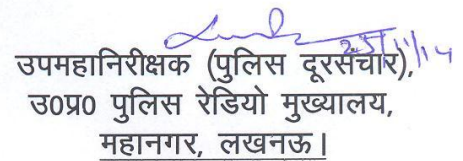 25/11/14
उपमहानिरीक्षक (पुलिस दूरसंचार),
उ0प्र0 पुलिस रेडियो मुख्यालय,
महानगर, लखनऊ।